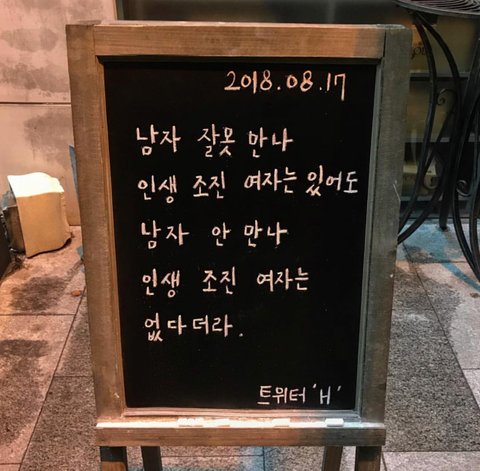 2018.08.17
남자 잘못 만나
인생 조진 여자는 있어도
남자 안 만나
인생 조진 여자는
없다더라.
트위터 'H'